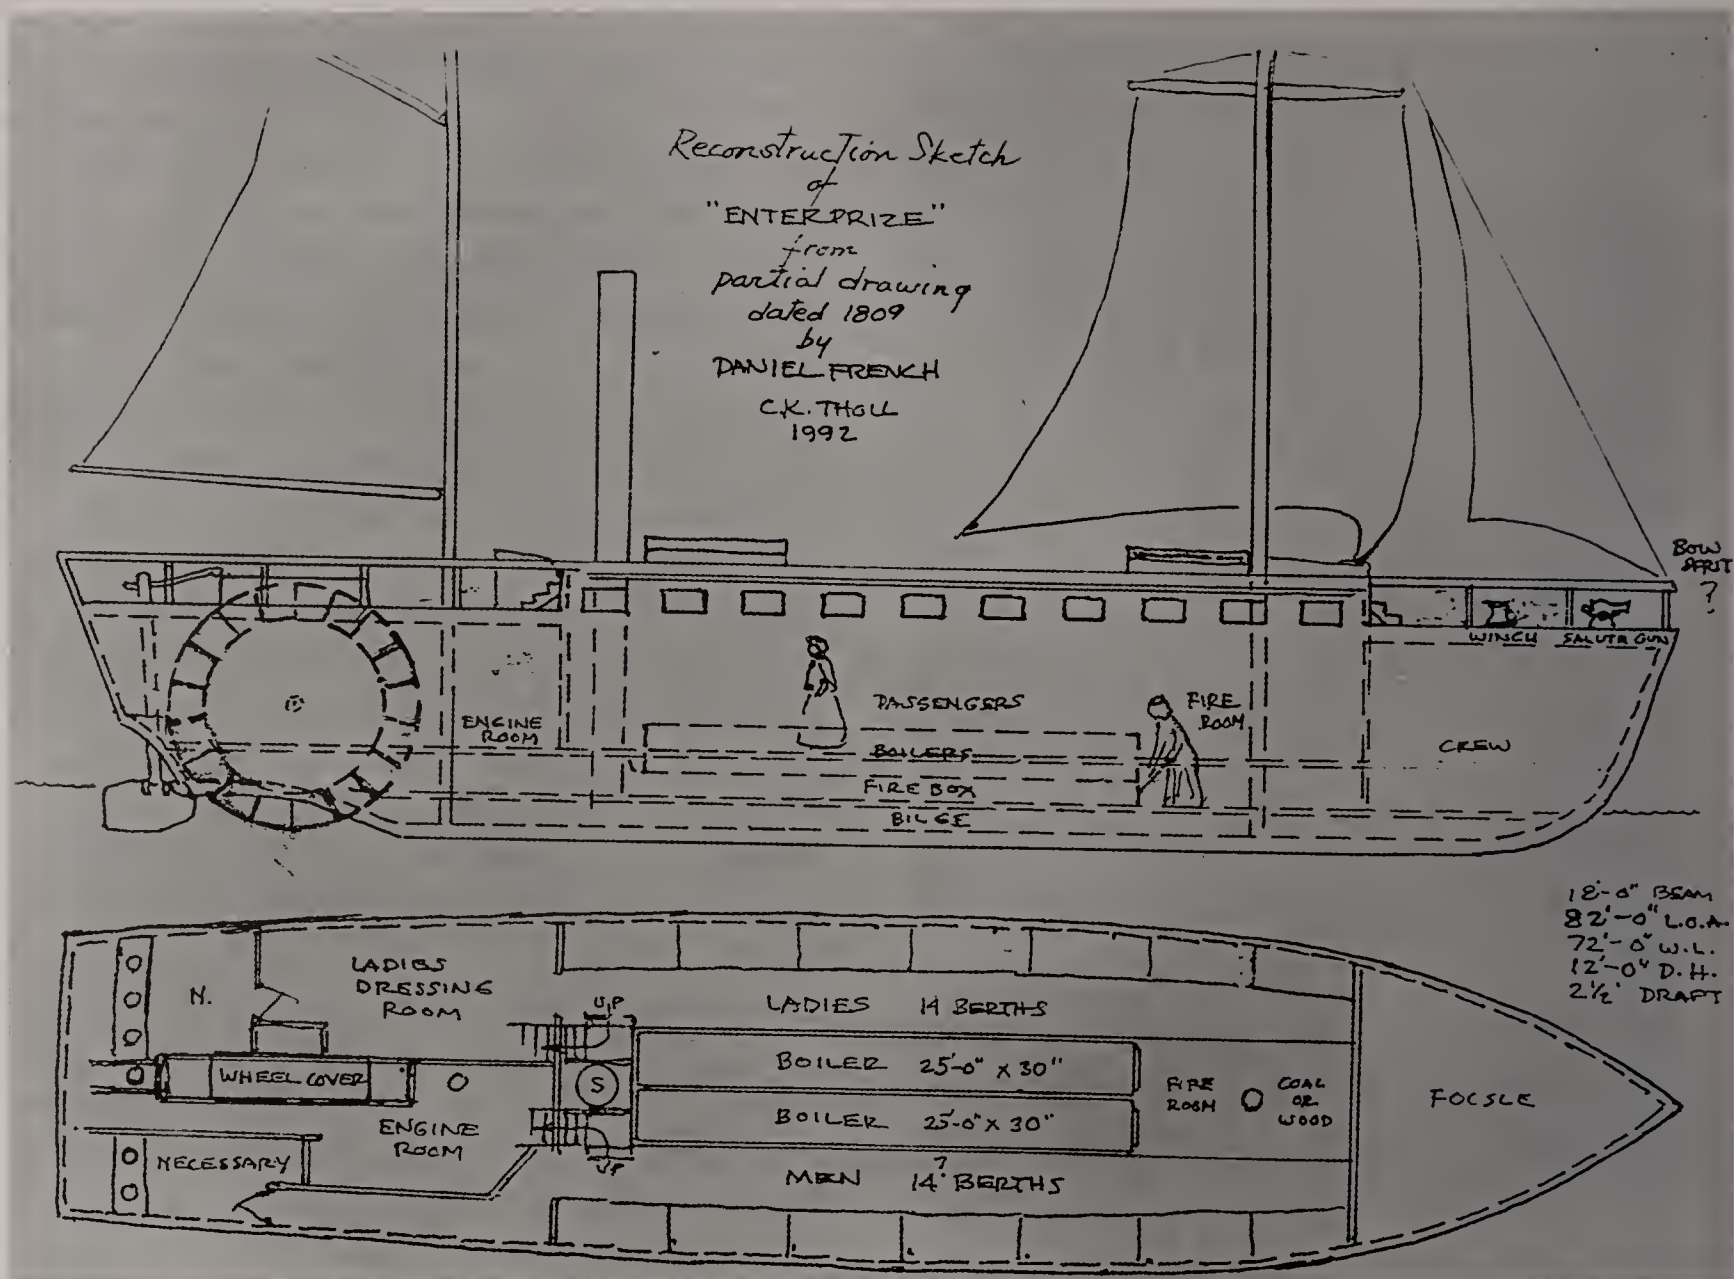 Reconstruction Sketch
of
"ENTERPRIZE"
from
partial drawing
dated 1809
by
DANIEL FRENCH
C.K. THOLL
1992
BOW
SPRIT
?
WINCH
SALUTE GUN
PASSENGERS
FIRE
ROOM
ENGINE
ROOM
BOILERS
CREW
FIRE BOX
BILGE
18'-0" BEAM
82'-0" L.O.A.
72'-0" W.L.
12'-0" D.H.
2½' DRAFT
N.
LADIES
DRESSING
ROOM
UP
LADIES 14 BERTHS
WHEEL COVER
S
BOILER 25'-0" X 30"
FIRE
ROOM
COAL
OR
WOOD
FOCSLE
BOILER 25'-0" X 30"
ENGINE
ROOM
NECESSARY
UP
MEN 14? BERTHS